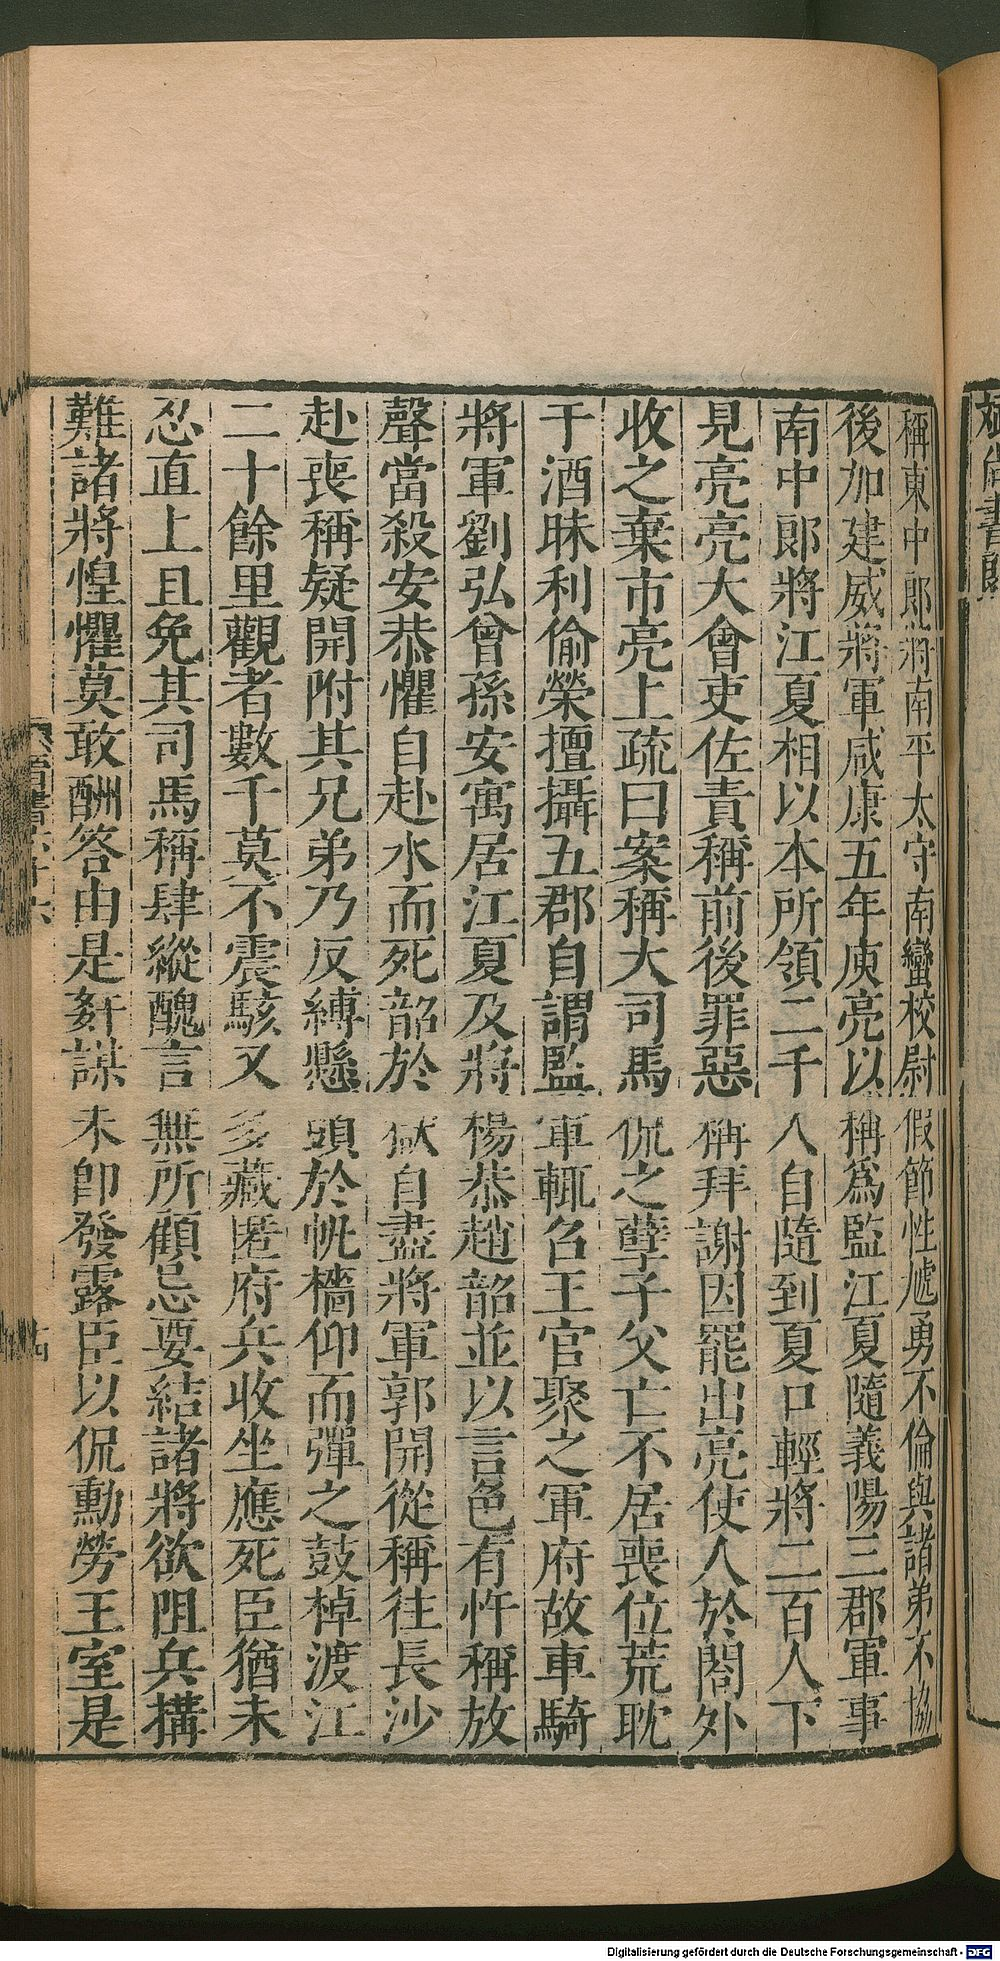 稱東中郎將南平太守南蠻校尉假節性虓勇不倫與諸弟不協
後加建威將軍咸康五年庾亮以稱爲監江夏隨義陽三郡軍事
南中郎將江夏相以本所領二千人自隨到夏口輕將二百人下
見亮亮大會吏佐責稱前後罪惡稱拜謝因罷出亮使人於閤外
收之棄市亮上疏曰案稱大司馬侃之孽子父亡不居喪位荒耽
于酒昧利偷榮擅攝五郡自謂監軍輒召王官聚之軍府故車騎
將軍劉弘曾孫安寓居江夏及將楊恭趙韶並以言色有忤稱放
聲當殺安恭懼自赴水而死韶於獄自盡將軍郭開從稱往長沙
赴喪稱疑開附其兄弟乃反縛懸頭於帆檣仰而彈之鼓棹渡江
二十餘里觀者數千莫不震駭又多藏匿府兵收坐應死臣猶未
忍直上且免其司馬稱肆縱醜言無所顧忌要結諸將欲阻兵搆
難諸將惶懼莫敢酬答由是姦謀未卽發露臣以侃勳勞王室是
晉書六十六
十四
Digitalisierung gefördert durch die Deutsche Forschungsgemeinschaft - DFG